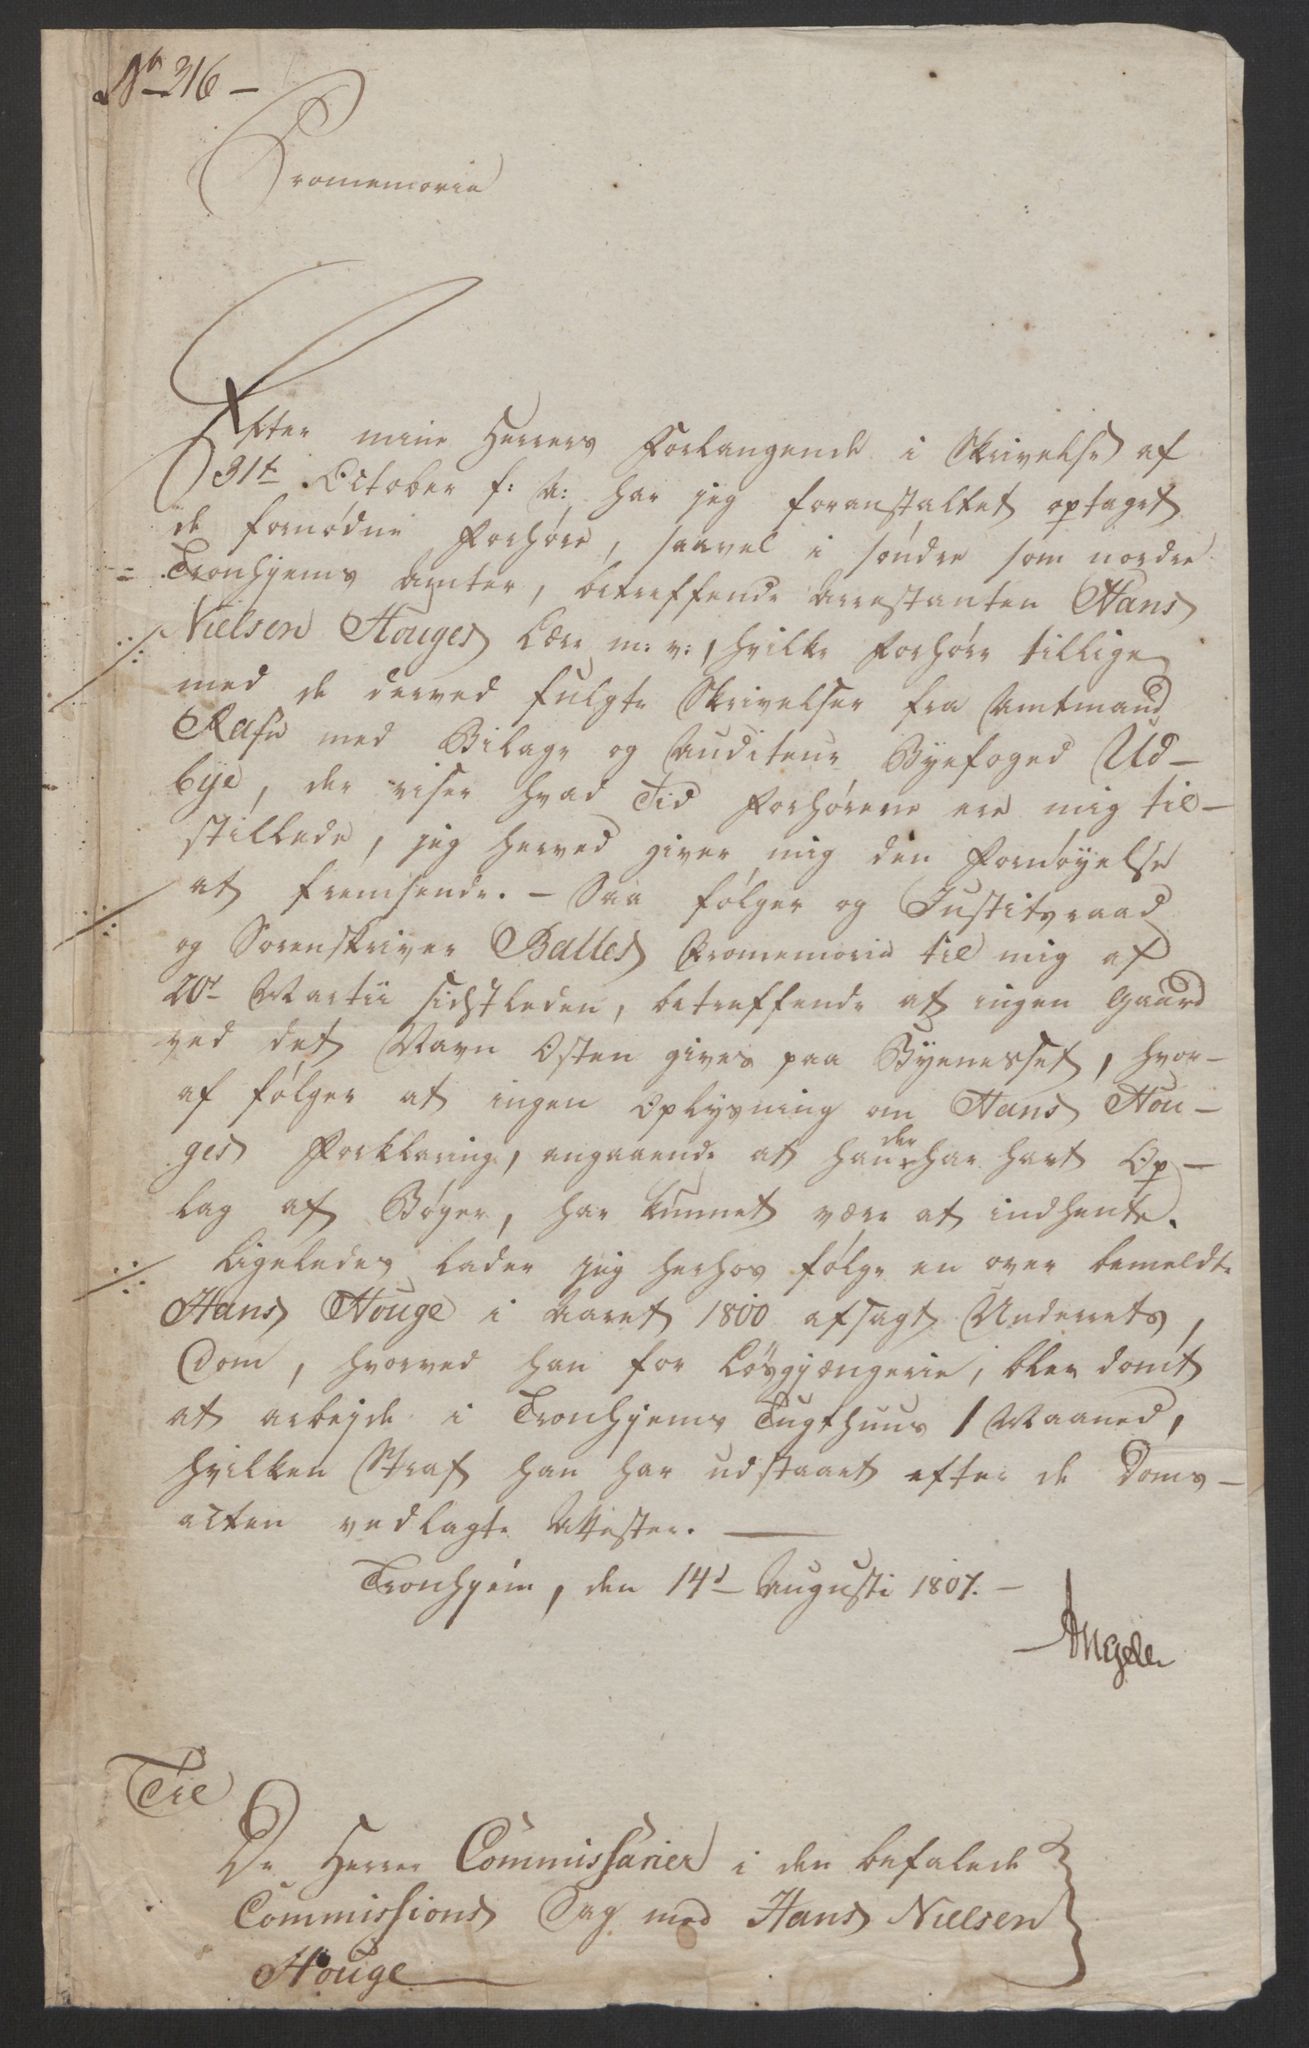 No 316 –
Promemoria
Efter mine Herrers Forlangende i Skrivelse af
31t October f: A: har jeg foranstaltet optaget
de fornødne Forhøre, saavel i søndre som nordre
Tronhjems Amter, betreffende Arrestanten Hans
Nielsen Houges Lære m: v:, hvilke Forhøre tillige
med de derved fulgte Skrivelser fra Amtmand
Rafn med Bilage og Auditeur Byefoged Ud-
bye, der viser hvad Tid Forhørene ere mig til-
stillede, jeg herved giver mig den Fornøyelse
at fremsende. – Saa følger og Justitsraad
og Sorenskriver Balles Promemoria til mig af
20t Martii sidstleden, betreffende at ingen Gaard
ved det Navn Østen gives paa Byenesset, hvor-
af følger at ingen Oplysning om Hans Hou-
ges Forklaring, angaaende at han der har havt Op-
lag af Bøger, har kunnet være at indhente.
Ligeledes lader jeg herhos følge en over bemeldte
Hans Houge i Aaret 1800 afsagt Underrets,
Dom, hvorved han for Løsgjængerie, blev dømt
at arbejde i Tronhjems Tugthuus 1 Maaned,
hvilken Straf han har udstaaet efter de Doms-
acten vedlagte Attester. —
Tronhjem, den 14d Augusti 1807. –
Angell
Til
De Herrer Commissarier i den befalede
Commissions Sag med Hans Nielsen
Houge